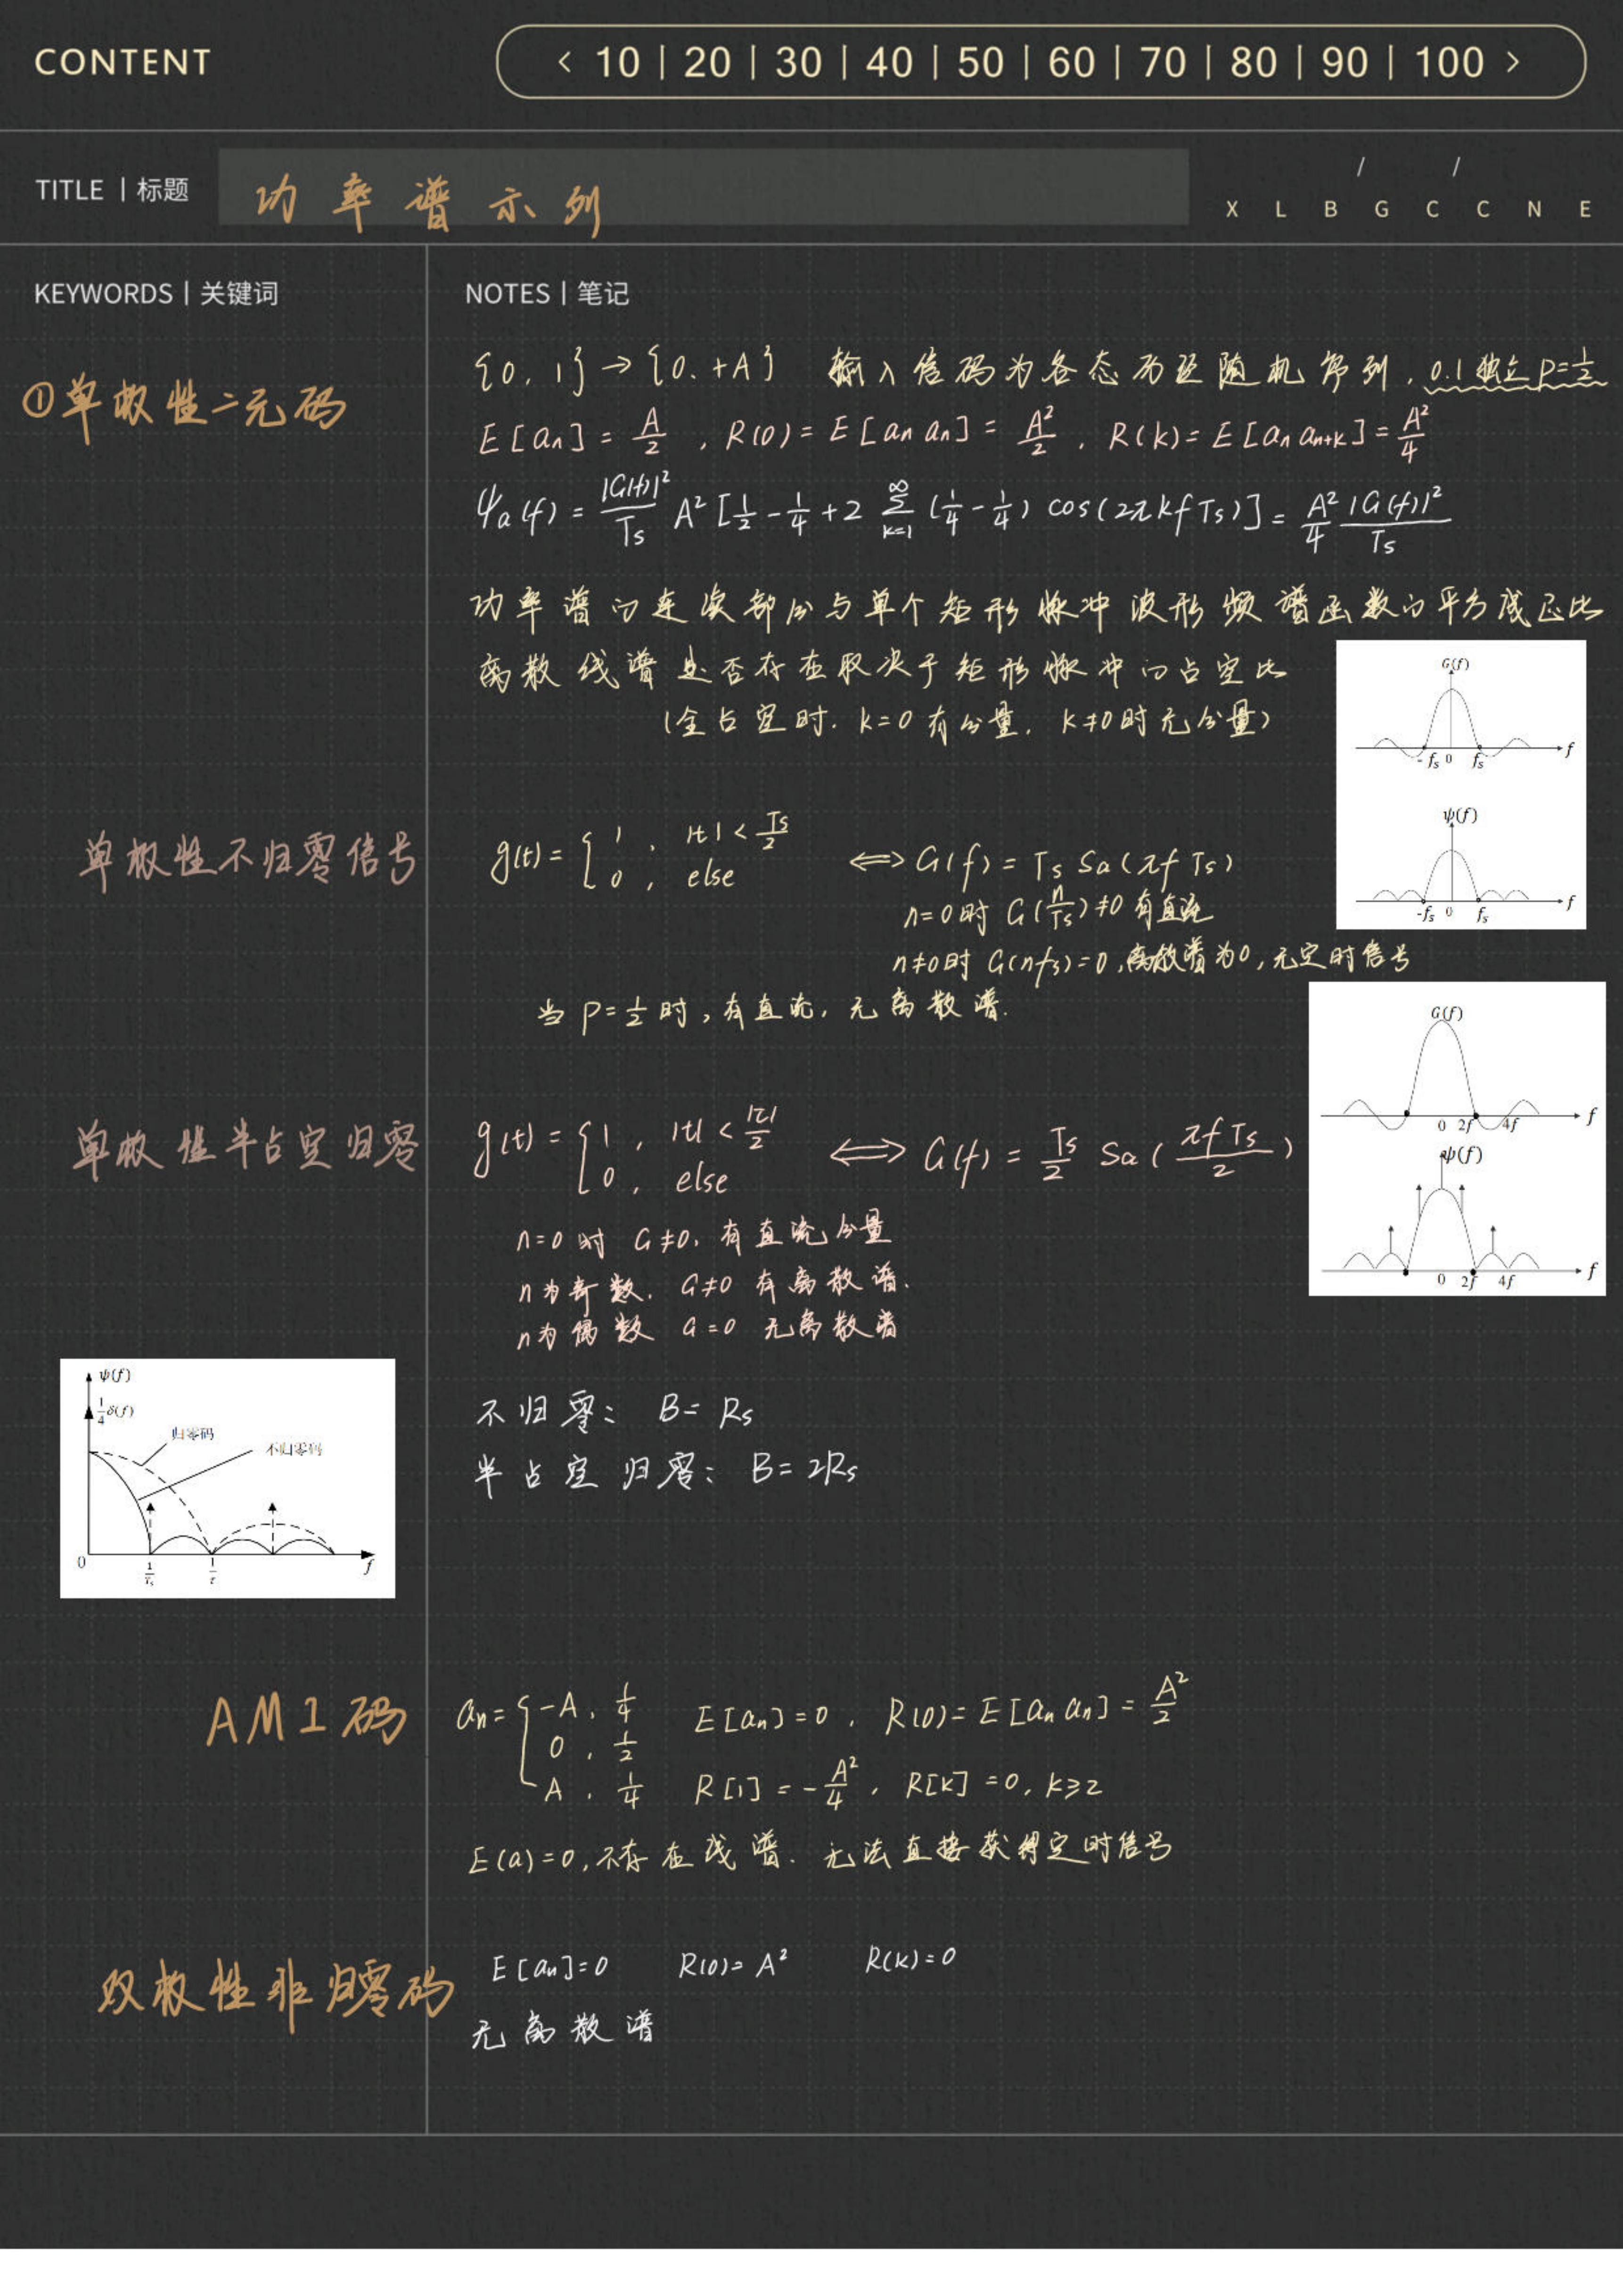 CONTENT
< 10 | 20 | 30 | 40 | 50 | 60 | 70 | 80 | 90 | 100 >
TITLE | 标题
功率谱示列
/ /
X L B G C C N E
KEYWORDS | 关键词
NOTES | 笔记
①单极性二元码
{0, 1} → {0, +A} 输入信码为各态历经随机序列, 0.1独立 P=1/2
E[an] = A/2 , R(0) = E[an an] = A²/2 , R(k) = E[an an+k] = A²/4
ψa(f) = |G(f)|²/Ts A² [1/2 - 1/4 + 2 ∞Σk=1 (1/4 - 1/4) cos(2πkfTs)] = A²/4 |G(f)|²/Ts
功率谱的连续部分与单个矩形脉冲波形频谱函数的平方成正比
离散线谱是否存在取决于矩形脉冲的占空比
(全占空时. k=0有分量, k≠0时无分量)
G(f)
-fs 0 fs f
ψ(f)
-fs 0 fs f
单极性不归零信号
g(t) = { 1 , |t| < Ts/2
0 , else
⟺ G(f) = Ts Sa(πfTs)
n=0时 G(n/Ts)≠0 有直流
n≠0时 G(nfs)=0,离散谱为0,无定时信号
当 P=1/2 时,有直流,无离散谱.
G(f)
0 2f 4f f
ψ(f)
0 2f 4f f
单极性半占空归零
g(t) = { 1 , |t| < |τ|/2
0 , else
⟺ G(f) = Ts/2 Sa(πfTs/2)
n=0时 G≠0, 有直流分量
n为奇数, G≠0 有离散谱.
n为偶数 G=0 无离散谱
ψ(f)
1/4 δ(f)
归零码
不归零码
0 1/Ts 1/τ f
不归零: B= Rs
半占空归零: B= 2Rs
AMI码
an= { -A, 1/4
0, 1/2
A, 1/4
E[an]=0, R(0)= E[an an] = A²/2
R[1] = -A²/4, R[k] =0, k≥2
E(a)=0,不存在线谱. 无法直接获得定时信号
双极性非归零码
E[an]=0 R(0)= A² R(k)=0
无离散谱